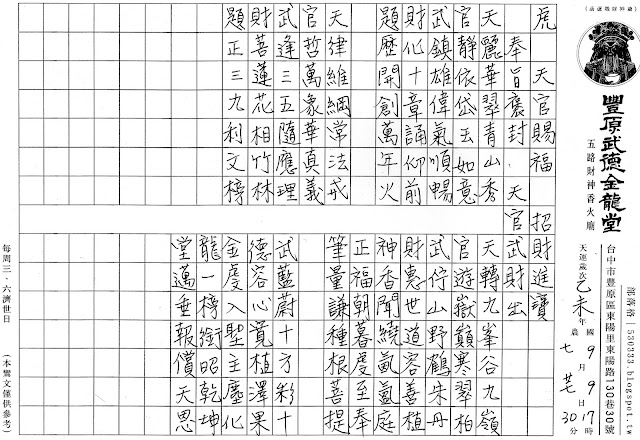 豐原武德金龍堂
五路財神香火廟
部落格｜530333.blogspot.tw
台中市豐原區東陽里東陽路130巷30號
天運歲次乙未年
國9月9日17時
農七廿七30分
虎 天官賜福 招財進寶
奉旨褒封．天官武財出
天麗華翠青山秀
官靜依岱玉如意
武鎮雄偉氣順暢
財化十章誦仰前
題歷開創萬年火
天律維綱常法戒
官哲萬象華真義
武逢三五隨應理
財善蓮花相竹林
題正三九利文榜
天轉九峯谷九嶺
官遊嶽巔寒翠柏
武佇山野鶴朱丹
財惠世道容善植
神香聞繞氤氳庭
正福朝暮虔至奉
筆量謙種根菩提
武藍蔚十方彩十
德容心覓植澤果
金虔入聖主塵化
龍一榜銜昭乾坤
堂邁垂報償天恩
每周三．六濟世日
（本鸞文僅供參考）